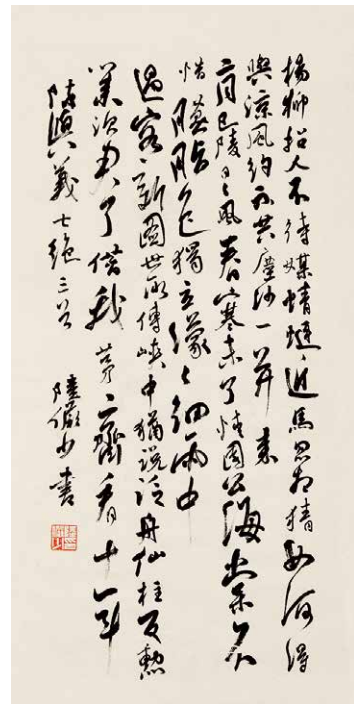 楊柳招人不待媒蜻蜓近馬忽相猜如何得
與涼風約不共塵沙一并來
二月巴陵日日風春寒未了怯園公海棠不
惜臙脂色獨立濛濛細雨中
新圖世傳峽中猶說泛舟仙柱天勳
業了借我茅齋看十年
陳與義七絕三首 陸儼少書